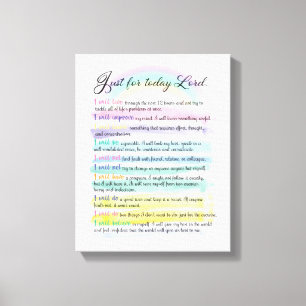 Just for today Lord
I will live through the next 12 hours and not try to
tackle all of life's problems at once.
I will improve my mind. I will learn something useful.
something that requires effort, thought,
and concentration.
I will be agreeable. I will look my best, speak in a
well modulated voice, be courteous and considerate.
I will not find fault with friend, relative, or colleague.
I will not try to change or improve anyone but myself.
I will have a program. I might not follow it exactly,
but I will have it. I will save myself from two enemies:
hurry and indecision.
I will do a good turn and keep it a secret. If anyone
finds out, it won't count.
I will do two things I don't want to do, just for the exercise.
I will believe in myself. I will give my best to the world
and feel confident that the world will give its best to me.